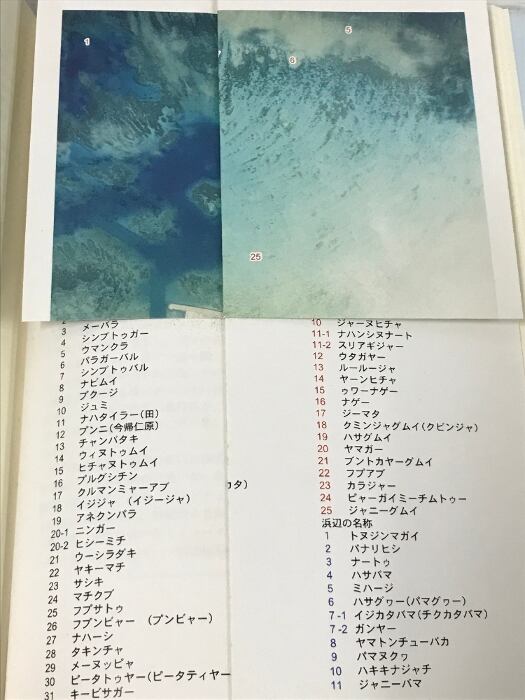 1
5
6
25
メーバラ
3 シンプトゥガー
4 ウマンクラ
5 バラガーバル
6 シンプトゥバル
7 ナビムイ
8 ブクージ
9 ジュミ
10 ナハタイラー(田)
11 ブンニ(今帰仁原)
12 チャンバタキ
13 ウィヌトゥムイ
14 ヒチャヌトゥムイ
15 ブルグシチン
16 クルマンミャーアブ
17 イジジャ (イジージャ)
18 アネクンバラ
19 ニンガー
20-1 ヒシーミチ
20-2 ウーシラダキ
21 ヤキーマチ
22 サシキ
23 マチクブ
24 フブサトゥ
25 フブンビャー (ブンビャー)
26 ナハーシ
27 タキンチャ
28 メーヌッビャ
29 ビータトゥヤー(ビータティヤー
30 キービサガー
31
カタ)
10 ジャーヌヒチャ
11-1 ナハンシヌナート
11-2 スリアギジャー
12 ウタガヤー
13 ルールージャ
14 ヤーンヒチャ
15 ゥワーナゲー
16 ナゲー
17 ジーマタ
18 クミンジャグムイ(クビンジャ)
19 ハサグムイ
20 ヤマガー
21 ブントカヤーグムイ
22 フブアブ
23 カラジャー
24 ビャーガイミーチムトゥー
25 ジャニーグムイ
浜辺の名称
1 トヌジンマガイ
2 バナリヒシ
3 ナートゥ
4 ハサバマ
5 ミハージ
6 ハサグヮー(バマグヮー)
7-1 イジカタバマ(チクカタバマ)
7-2 ガンヤー
8 ヤマトンチューバカ
9 バマヌクヮ
10 ハキキナジャチ
11 ジャニーバマ